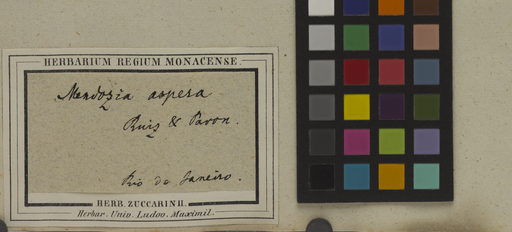 HERBARIUM REGIUM MONACENSE.
Mendozia aspera
Ruiz & Pavon.
Rio de Janeiro.
HERB. ZUCCARINII.
Herbar. Univ. Ludov. Maximil.